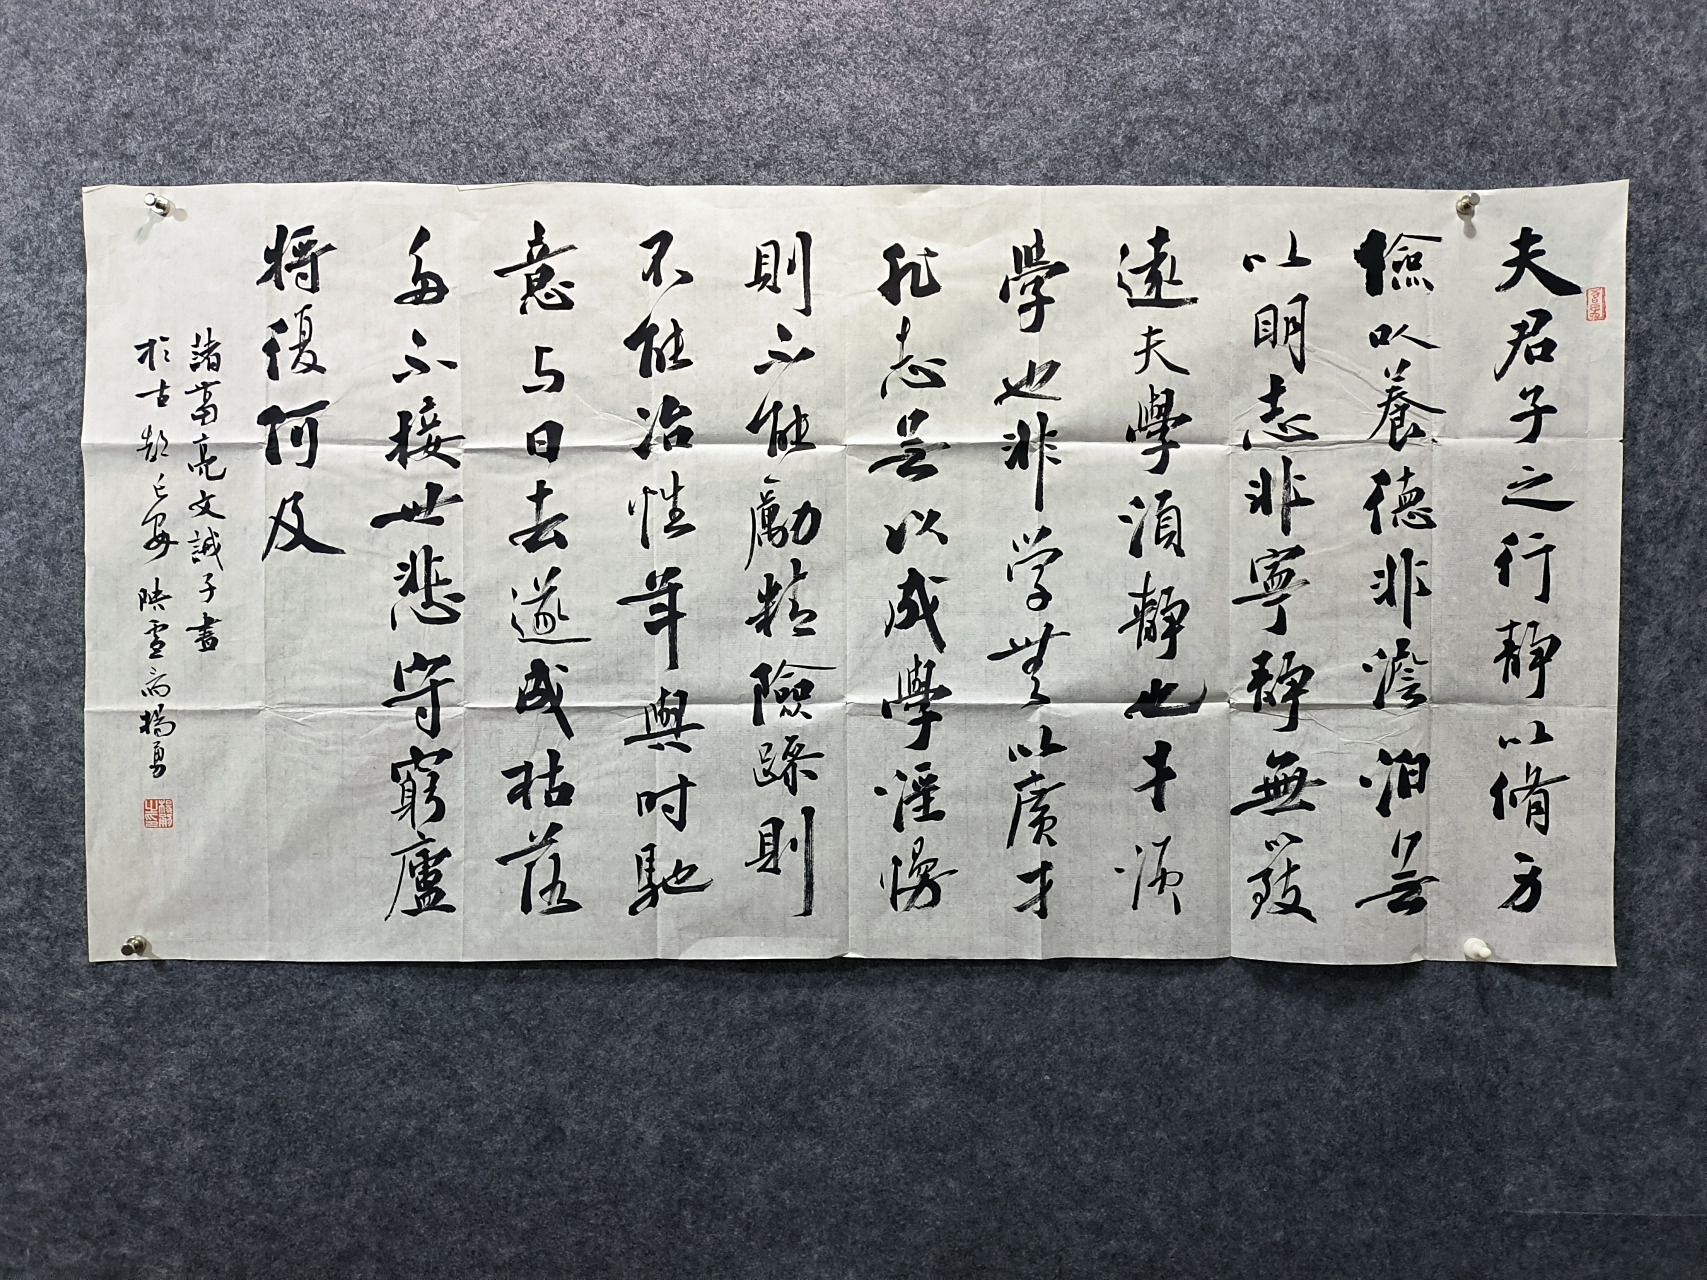 夫君子之行靜以脩身
儉以養德非澹泊無
以明志非寧靜無以致
遠夫學須靜也才須
學也非学無以廣才
非志無以成學淫慢
則不能勵精險躁則
不能冶性年與時馳
意与日去遂成枯落
多不接世悲守窮廬
將復何及
諸葛亮文誡子書
於古都长安映雪斋楊勇